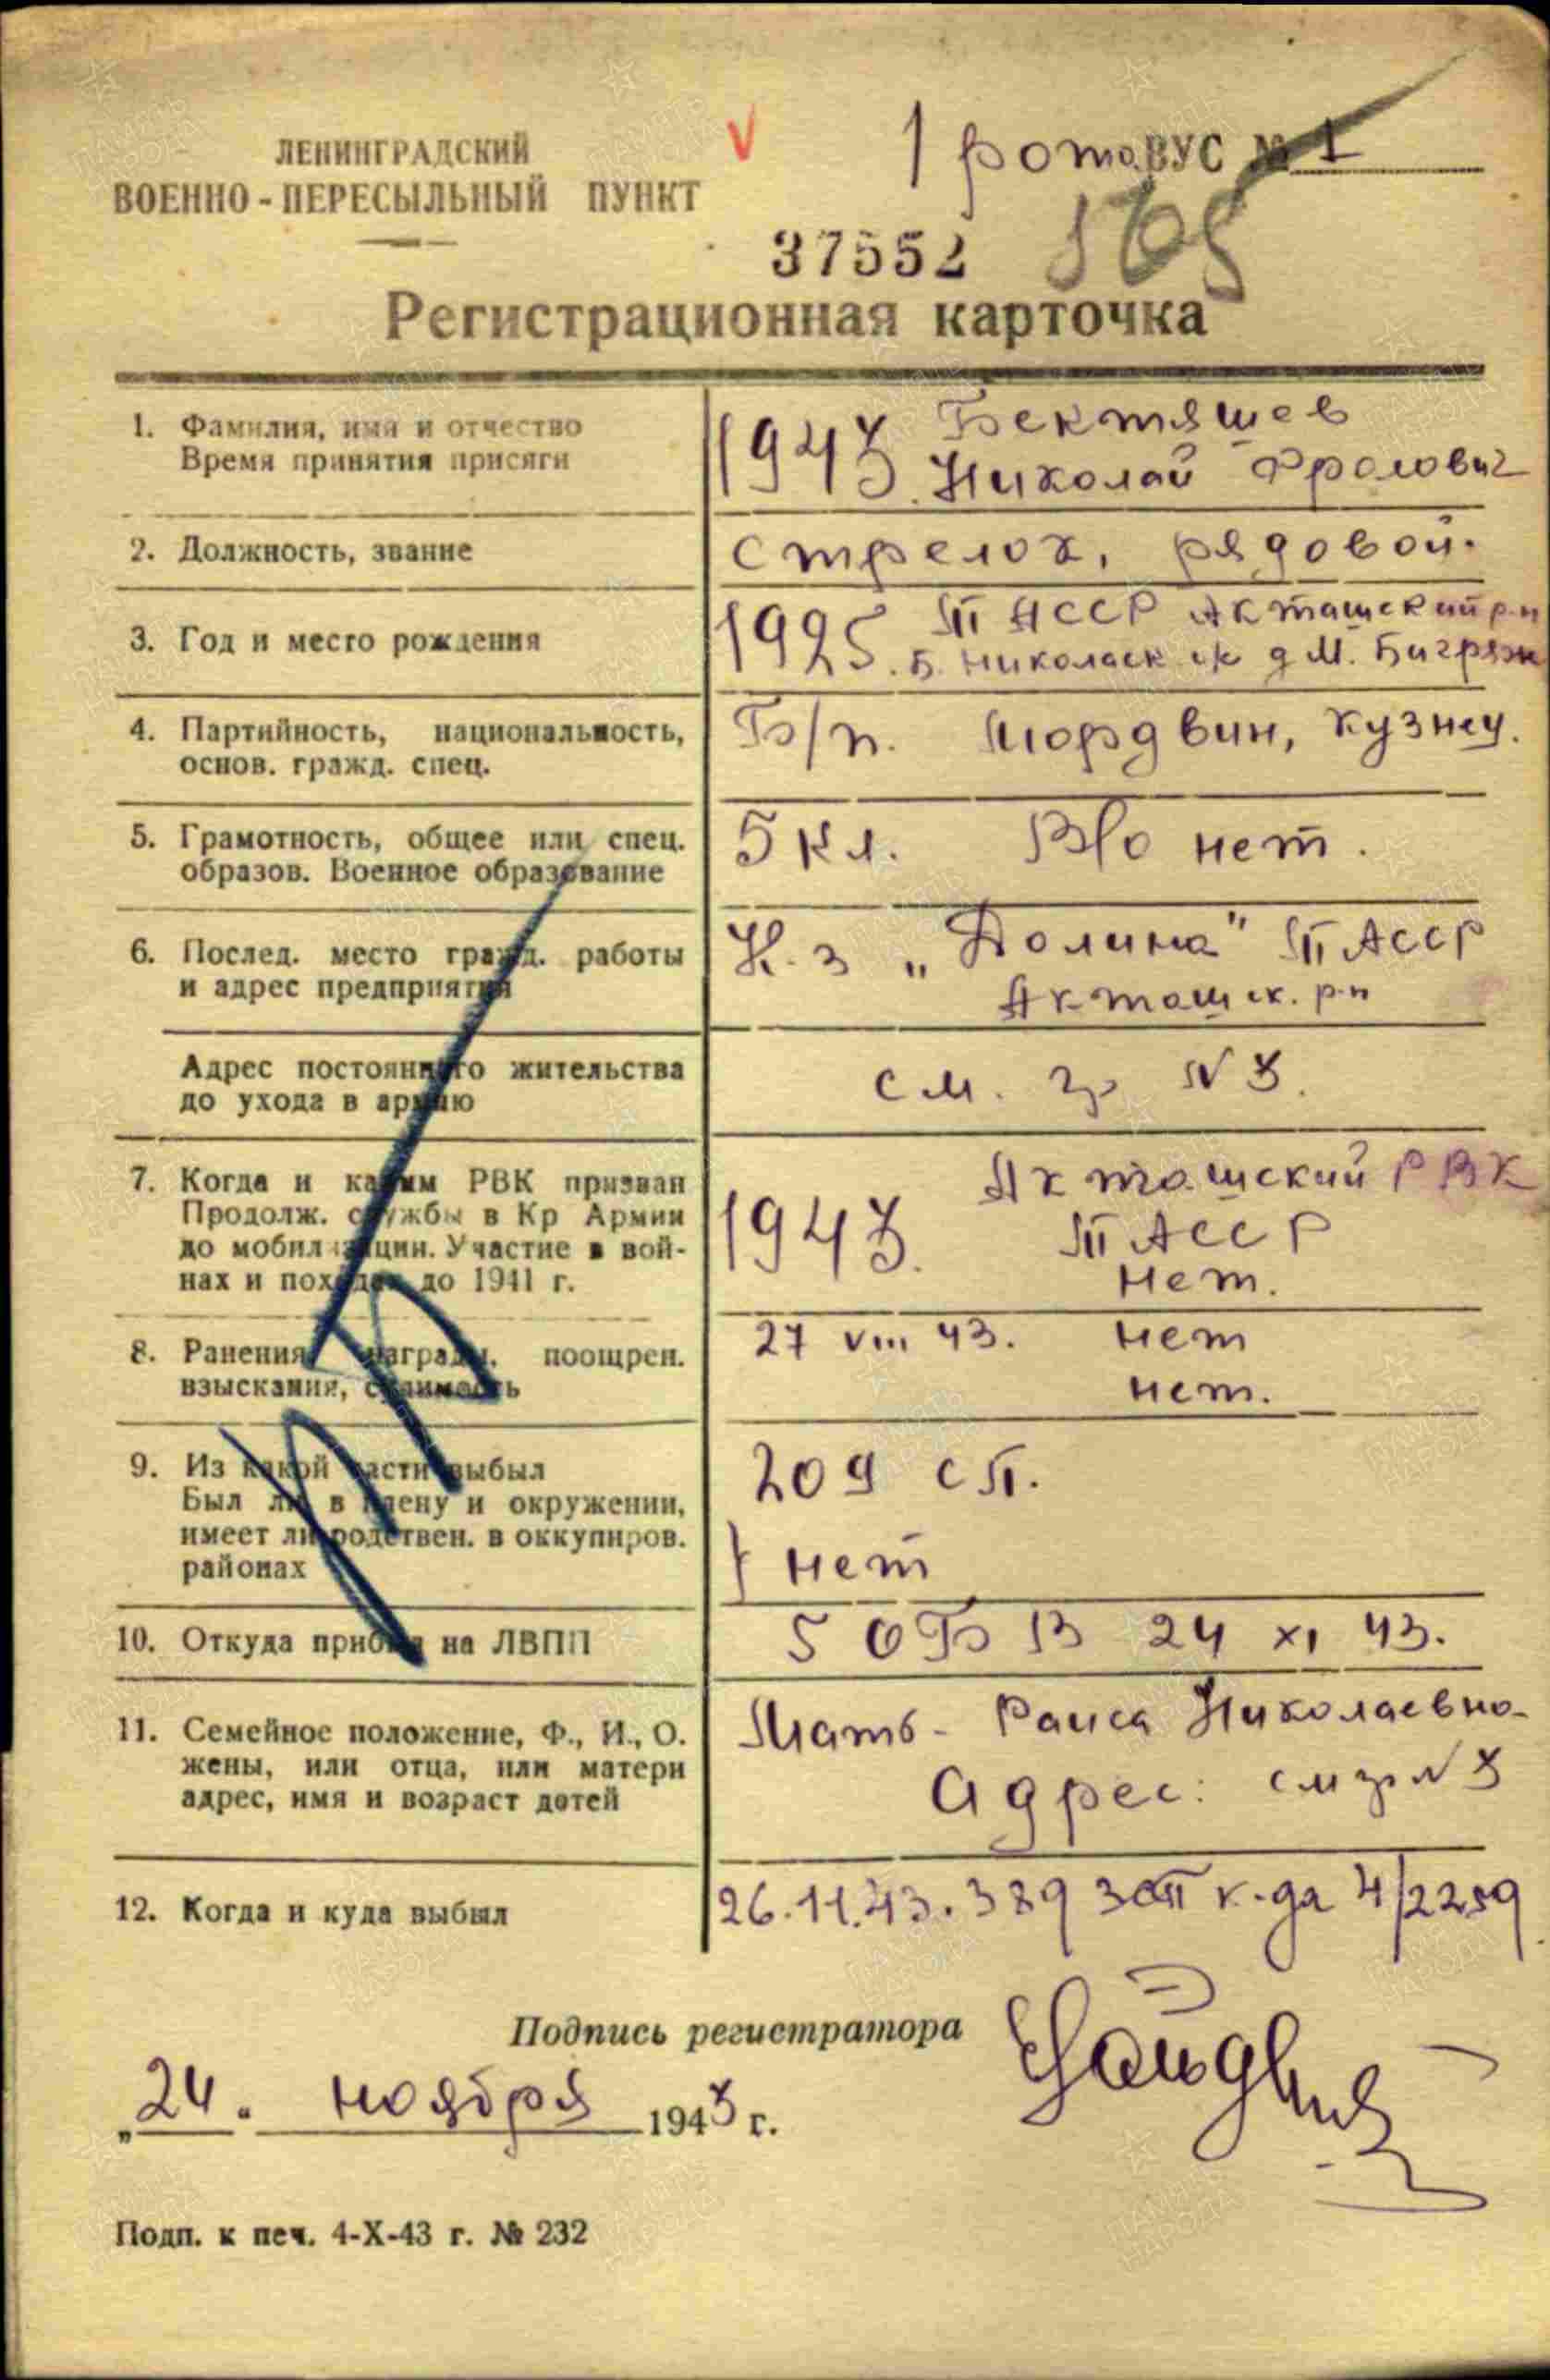 ЛЕНИНГРАДСКИЙ
ВОЕННО-ПЕРЕСЫЛЬНЫЙ ПУНКТ
V
1 рота ВУС № 1
37552
Регистрационная карточка
1. Фамилия, имя и отчество
Время принятия присяги
1943 Бектяшев
Николай Фролович
2. Должность, звание
стрелок, рядовой.
3. Год и место рождения
1925. ТАССР Акташский р-н
Б. Николаск с/с д М. Багряж
4. Партийность, национальность,
основ. гражд. спец.
Б/п. Мордвин, кузнец.
5. Грамотность, общее или спец.
образов. Военное образование
5 кл. В/о нет.
6. Послед. место гражд. работы
и адрес предприятия
К-з „Долина" ТАССР
Акташск. р-н
Адрес постоянного жительства
до ухода в армию
см. гр N 3.
7. Когда и каким РВК призван
Продолж. службы в Кр Армии
до мобилизации. Участие в вой-
нах и походах до 1941 г.
Акташский РВК
1943. ТАССР
нет.
8. Ранения, награды, поощрен.
взыскания, судимость
27 VIII 43. нет
нет.
9. Из какой части выбыл
Был ли в плену и окружении,
имеет ли родствен. в оккупиров.
районах
209 сп.
} нет
10. Откуда прибыл на ЛВПП
5 ОБВ 24 XI 43.
11. Семейное положение, Ф., И., О.
жены, или отца, или матери
адрес, имя и возраст детей
Мать - Раиса Николаевна
Адрес: см гр N 3
12. Когда и куда выбыл
26.11.43. 389 зсп к-да 4/2259
Подпись регистратора
„24" ноября 1943 г.
Подп. к печ. 4-X-43 г. № 232